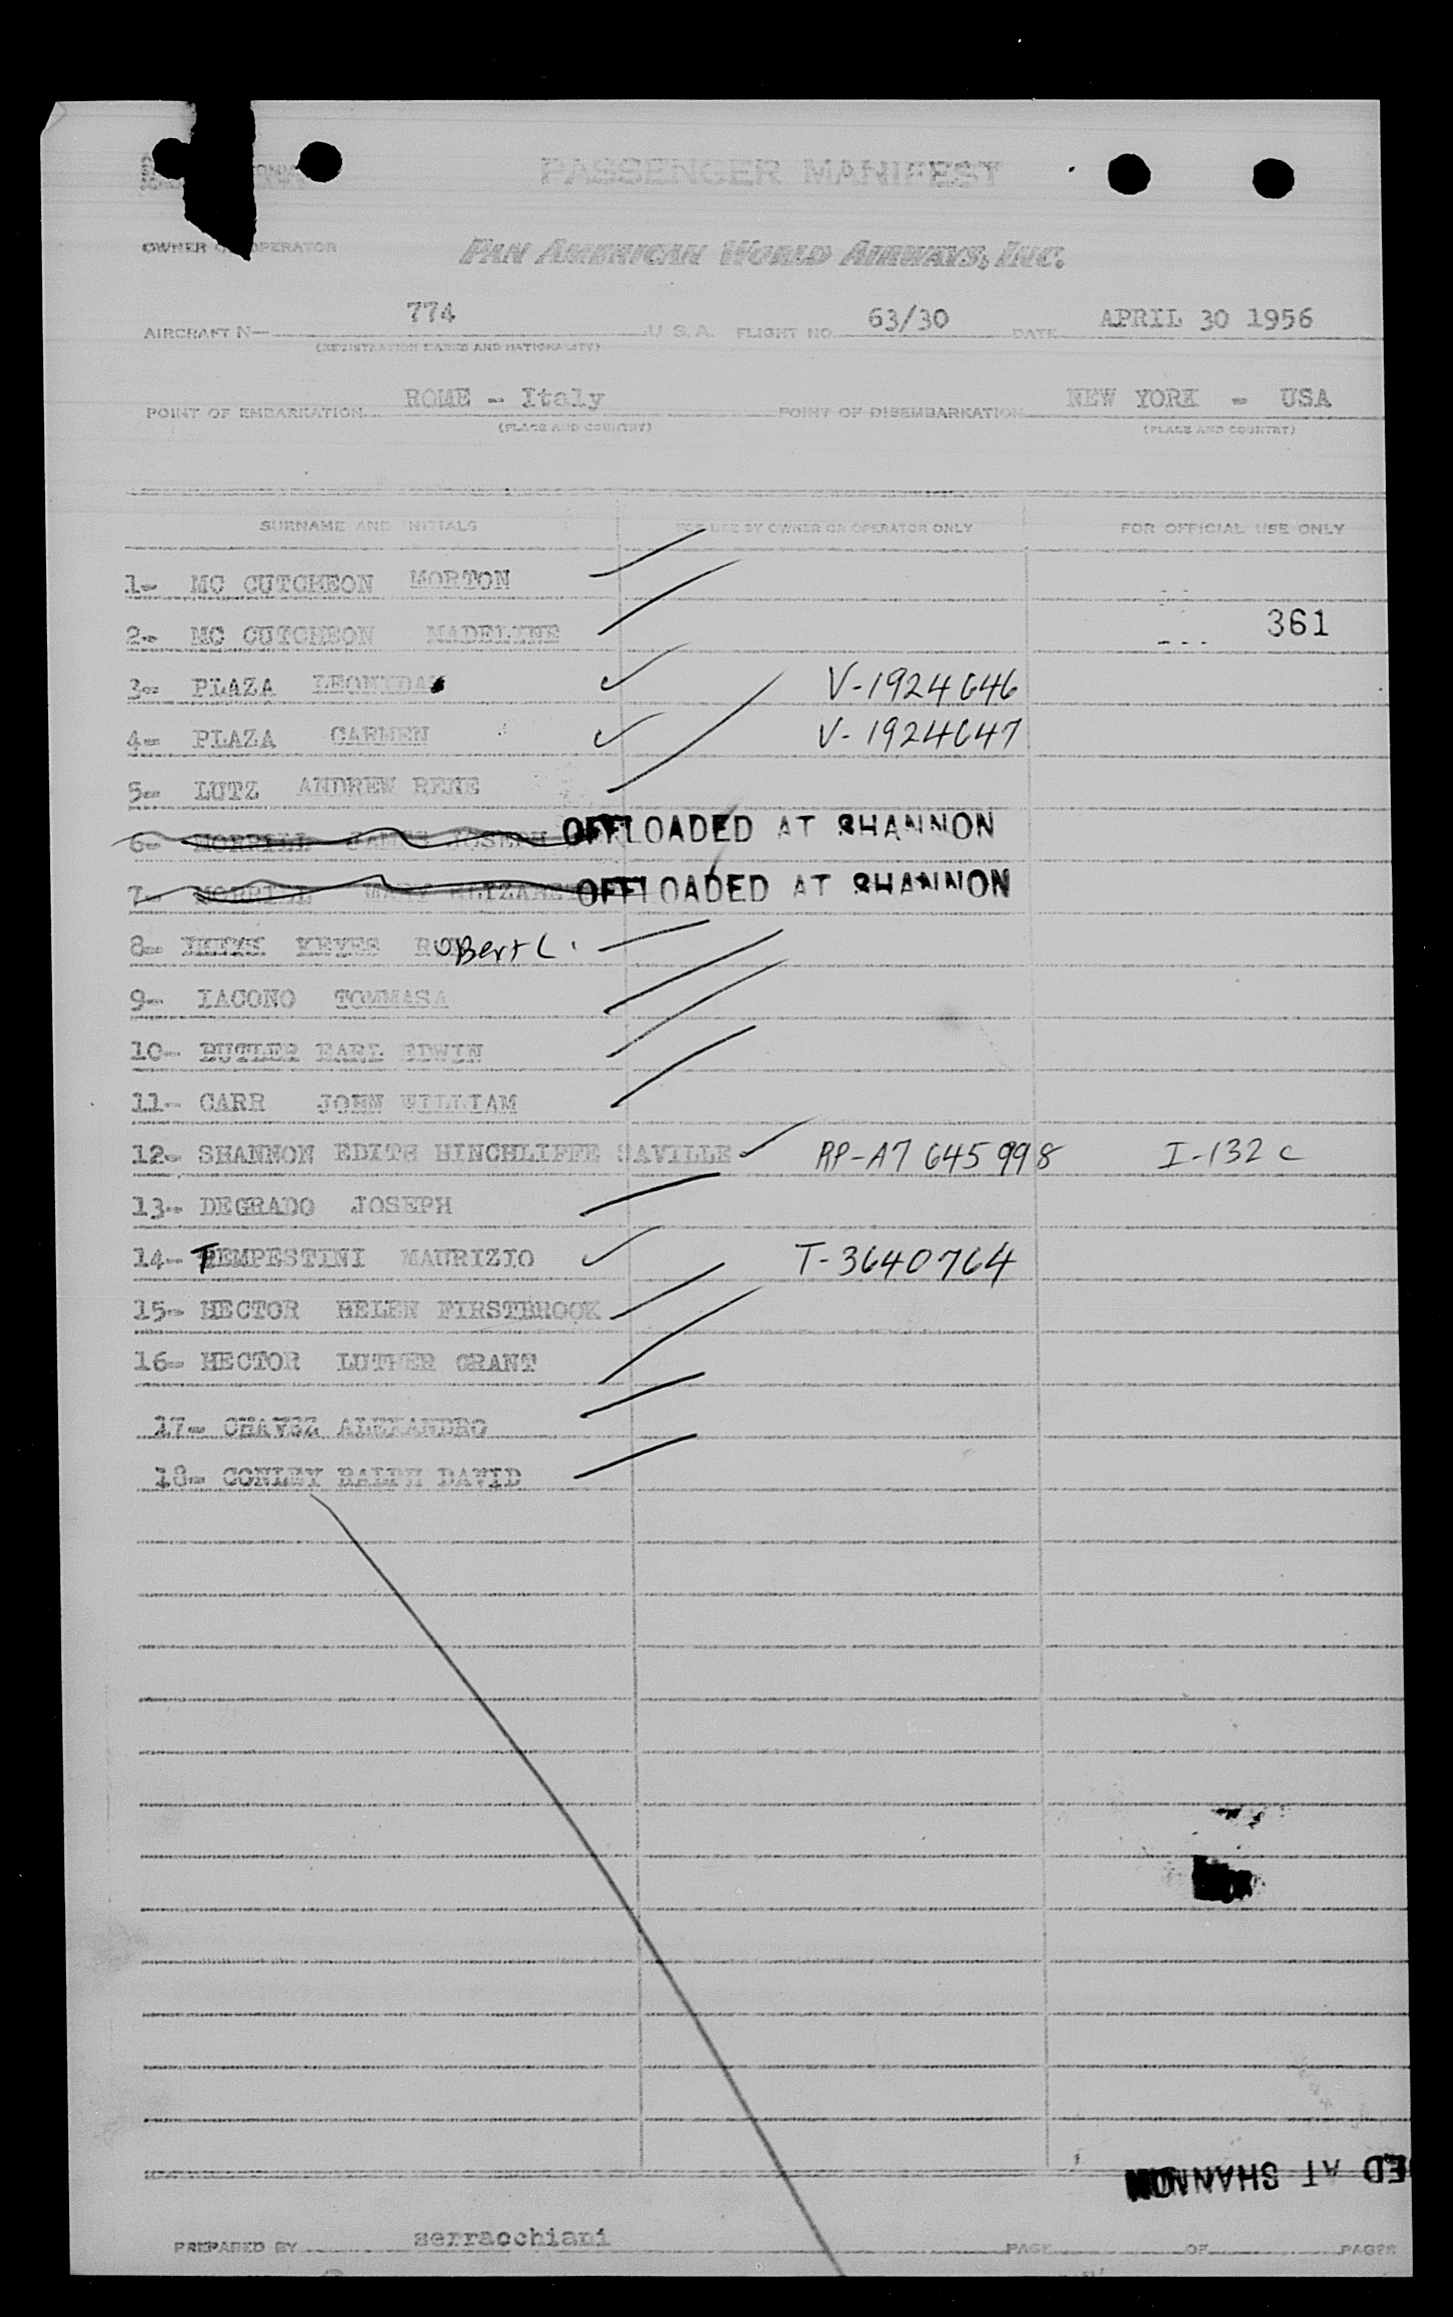 PASSENGER MANIFEST
OWNER OPERATOR PAN AMERICAN WORLD AIRWAYS, INC.
AIRCRAFT N- 774 U. S. A. FLIGHT NO. 63/30 DATE APRIL 30 1956
(REGISTRATION MARKS AND NATIONALITY)
POINT OF EMBARKATION ROME - Italy POINT OF DISEMBARKATION NEW YORK - USA
(PLACE AND COUNTRY) (PLACE AND COUNTRY)
SURNAME AND INITIALS FOR USE BY OWNER OR OPERATOR ONLY FOR OFFICIAL USE ONLY
1- MC CUTCHEON MORTON
361
2- MC CUTCHEON MADELINE
3- PLAZA LEONYDAS V-1924646
4- PLAZA CARMEN V-1924647
5- LUTZ ANDREW RENE
6- MORRILL JAMES JOSEPH OFFLOADED AT SHANNON
7- MORRILL MARY ELIZABET OFFLOADED AT SHANNON
8- KEYES RObert L.
9- IACONO TOMMASA
10- BUTLER EARL EDWIN
11- CARR JOHN WILLIAM
12- SHANNON EDITH HINCHLIFFE SAVILLE RP-A7 645 998 I-132 c
13- DEGRADO JOSEPH
14- TEMPESTINI MAURIZIO T-3640764
15- HECTOR HELEN FIRSTBROOK
16- HECTOR LUTHER GRANT
17- CHAVEZ ALEXANDRO
18- CONLEY RALPH DAVID
ED AT SHANNON
PREPARED BY serracchiani PAGE OF PAGES